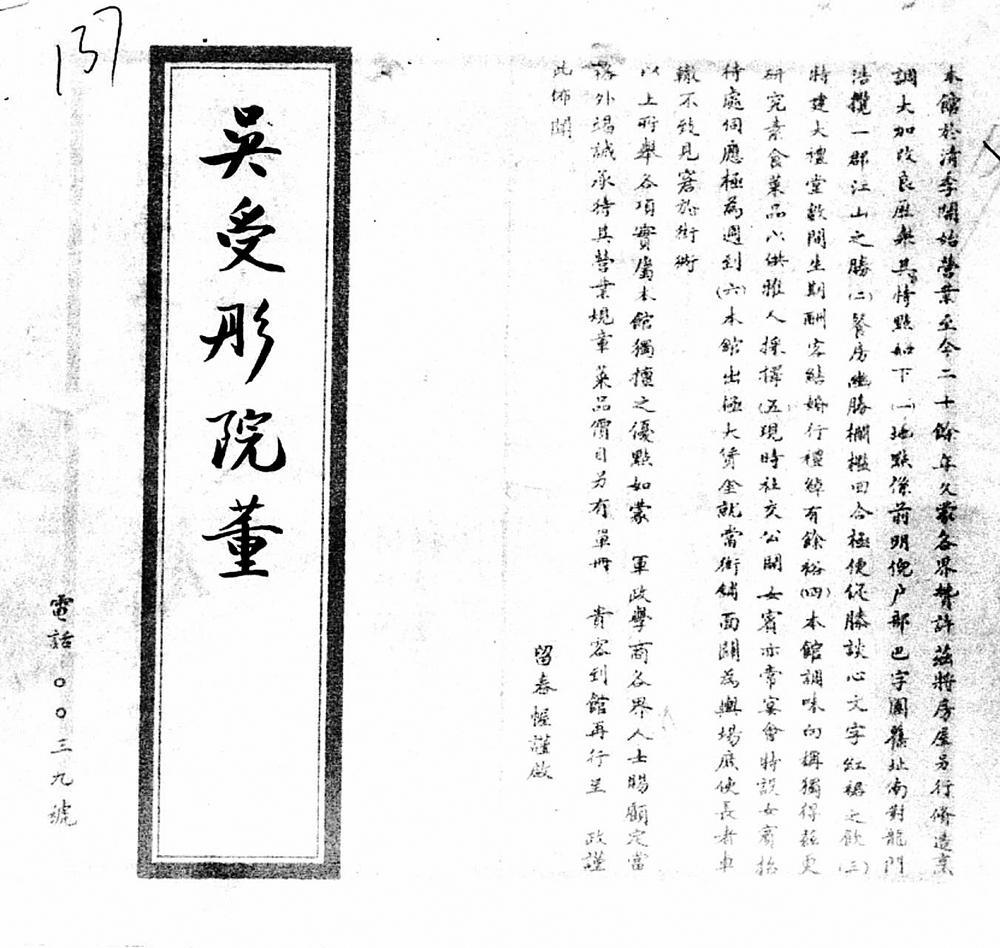 本館於清季開始營業至今二十餘年久蒙各界贊許茲將房屋另行修造烹
調大加改良歷舉其特點如下(一)地點係前明倪戶部巴字園舊址南對龍門
浩攬一郡江山之勝(二)餐房幽勝欄檻回合極便促膝談心文字紅裙之飲(三)
特建大禮堂數間生期酬客結婚行禮綽有餘裕(四)本館調味向稱獨得茲更
研究素食菜品以供雅人採擇(五)現時社交公開女賓亦常宴會特設女賓招
待處伺應極為週到(六)本館出極大賃金就當街鋪面闢為輿場庶使長者車
轍不致見窘於街衖
以上所舉各項實屬本館獨擅之優點如蒙 軍政學商各界人士賜顧定當
格外竭誠承待其營業規章菜品價目另有單冊 貴客到館再行呈 政謹
此佈聞
留春幄謹啟
吳受彤院董
電話〇〇三九號
137